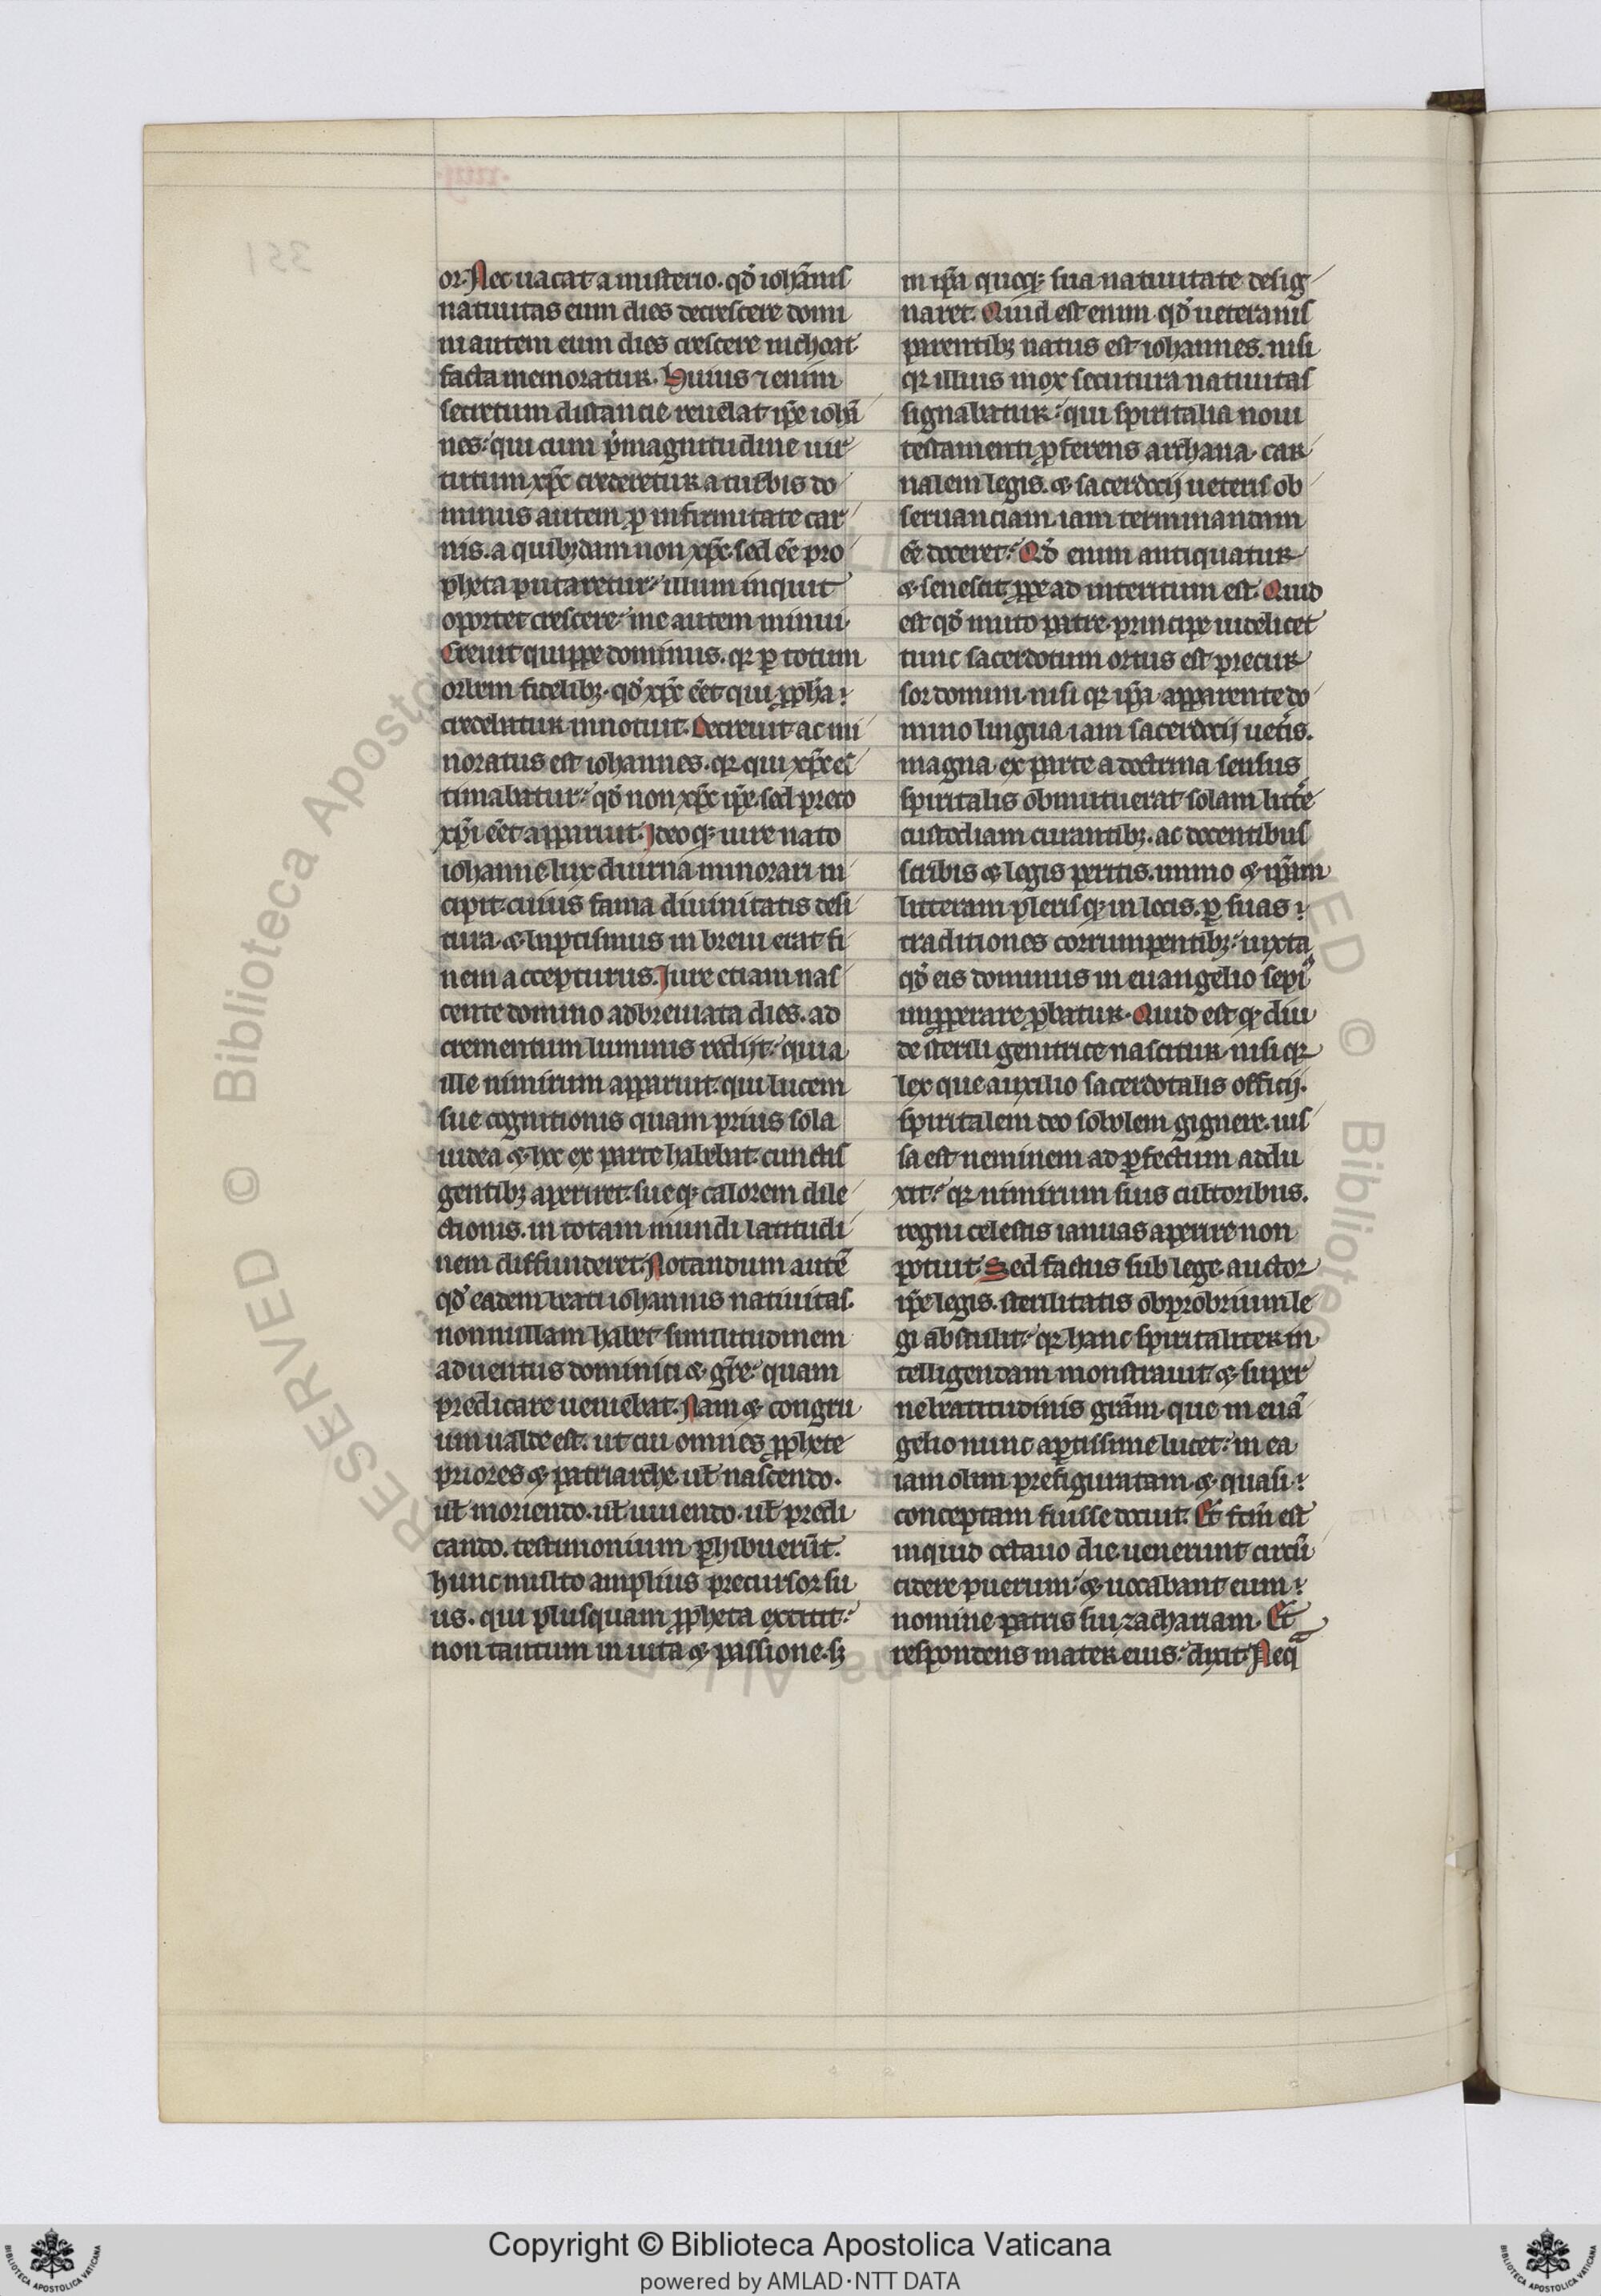 or. Nec uacat a misterio. qđ ioh̃anis
natiuitas cum dies decrescere domi
ni autem cum dies crescere inchoat
facta memoratur. Huius ⁊ enim
secretum distancie reuelat ip̃e ioh̃a
nes: qui cum p̱ magnitudine uir
tutum xp̃c crederetur a turbis do
minus autem ꝓ infirmitate car
nis. a quibꝫdam non xp̃c sed eẽ pro
pheta putaretur: illum inquit
oportet crescere: me autem minui.
Creuit quippe dominus. qꝛ ꝑ totum
orbem fidelibꝫ. qđ xp̃c eẽt qui ꝓph̃a
credebatur innotuit. Decreuit ac mi
noratus est iohannes. qꝛ qui xp̃c es
timabatur: qđ non xp̃c ip̃e. sed preco
xp̃i eẽt apparuit. Ideoqꝫ iure nato
iohanne lux diurna minorari in
cipit. cuius fama diuinitatis desi
tura. & baptismus in breui erat fi
nem accepturus. Iure etiam nas
cente domino adbreuiata dies. ad
crementum luminis redijt: quia
ille nimirum apparuit. qui lucem
sue cognitionis quam prius sola
iudea & hec ex parte habebat. cunctis
gentibꝫ aperiret. sueqꝫ calorem dile
ctionis. in totam mundi latitudi
nem diffunderet. Notandum autẽ
qđ eadem beati iohannis natiuitas.
nonnullam habet similitudinem
aduentus dominici & gr̃e: quam
predicare ueniebat. Nam & congru
um ualde est. ut cui omnes ꝓphete
priores & patriarche. ul̃ nascendo.
ul̃ moriendo. ul̃ uiuendo. ul̃ predi
cando. testimonium ꝑhibuerũt.
hunc multo amplius precursor su
us. qui plusquam ꝓpheta extitit:
non tantum in uita & passione. sꝫ
in ip̃a quoqꝫ sua natiuitate desig
naret. Quid est enim qđ ueteranis
parentibꝫ natus est iohannes. nisi
qꝛ illius mox secutura natiuitas
signabatur: qui spiritalia noui
testamenti ꝓferens archana. car
nalem legis. & sacerdocij ueteris ob
seruanciam. iam terminandam
eẽ doceret: Qđ enim antiquatur
& senescit. ꝓpe ad interitum est. Quid
est qđ muto patre. principe uidelicet
tunc sacerdotum ortus est precur
sor domini. nisi qꝛ ip̃a apparente do
mino lingua iam sacerdocij uet̃is.
magna ex parte a doctrina sensus
spiritalis obmutuerat. solam litt̃e
custodiam curantibꝫ. ac docentibus
scribis & legis peritis. immo & ip̃am
litteram plerisqꝫ in locis. ꝑ suas
traditiones corrumpentibꝫ: iuxta
qđ eis dominus in euangelio sepi
imꝓperare ꝓbatur. Quid est qđ diu
de sterili genitrice nascitur. nisi qꝛ
lex que auxilio sacerdotalis officij.
spiritalem deo sobolem gignere. ius
sa est neminem ad ꝑfectum addu
xit: qꝛ nimirum suis cultoribus.
regni celestis ianuas aperire non
potuit. Sed factus sub lege. auctor
ip̃e legis. sterilitatis obprobrium le
gi abstulit: qꝛ hanc spiritaliter in
telligendam monstrauit & super
ne beatitudinis gr̃am. que in euã
gelio nunc aptissime lucet: in ea
iam olim prefiguratam. & quasi
conceptam fuisse docuit. Et fc̃m est
inquid octauo die. uenerunt circũ
cidere puerum: & uocabant eum
nomine patris sui zachariam. Et
respondens mater eius: dixit. Neq̃
Copyright © Biblioteca Apostolica Vaticana
powered by AMLAD·NTT DATA